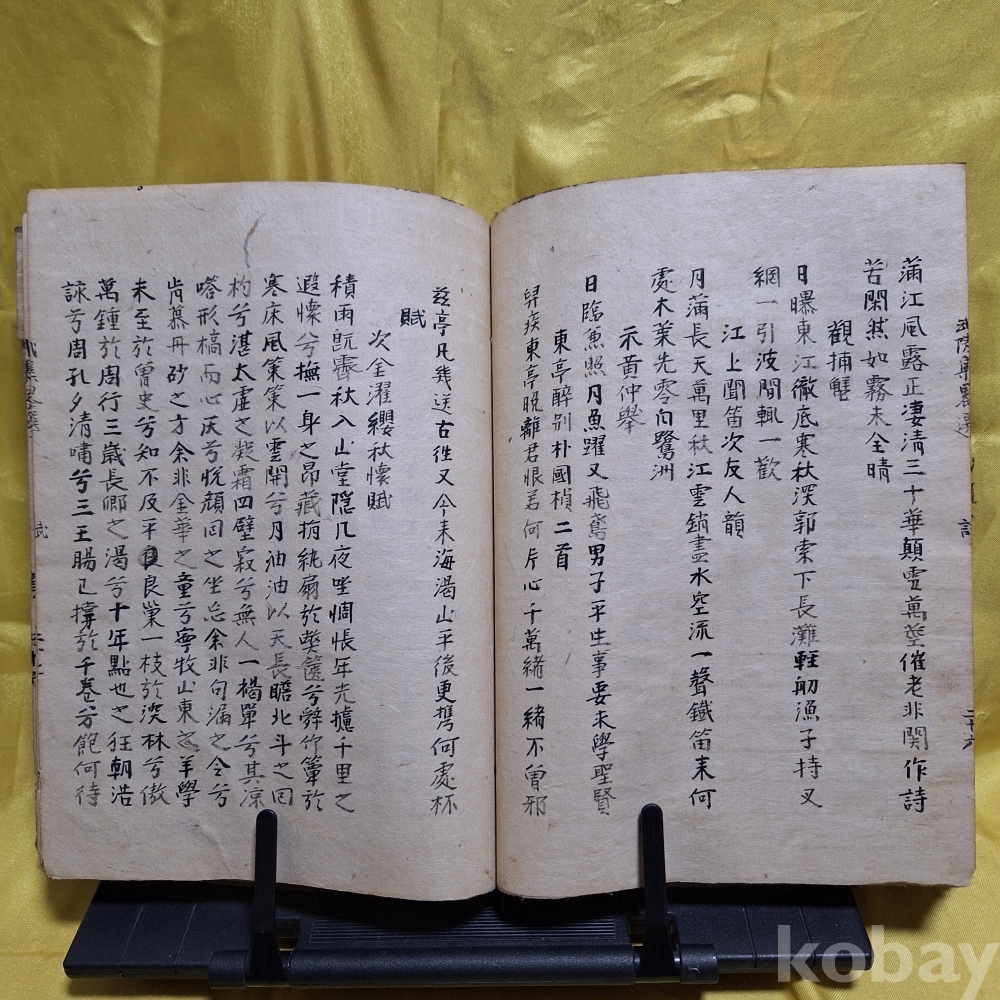 蒲江風露正凄清三十華顛雪萬莖催老非関作詩
苦閑然如霧未全晴
觀捕蟹
日曝東江徹底寒秋深郭索下長灘輕舠漁子持叉
網一引波間輒一歡
江上聞笛次友人韻
月蒲長天萬里秋江雲銷盡水空流一聲鐵笛来何
處木葉先零白鷺洲
示黄仲舉
日臨魚照月魚躍又飛鸢男子平生事要来學聖賢
東亭醉别朴國楨二首
兒疾東亭晚離君恨若何片心千萬緒一緒不曾邪
兹亭凡幾送古徃又今来海渴山平後更携何處杯
賦
次金濯纓秋懷賦
積雨旣霽秋入山堂隠几夜坐惆悵年光攄千里之
遐懷兮撫一身之昂藏捐紈扇於奬篋兮舜竹簟於
寒床風策策以雲開兮月油油以天長瞻北斗之囘
杓兮湛太虚之凝霜四壁寂兮無人一榻單兮其凉
嗒形槁而心灰兮恍顔囘之坐忘余非句漏之令兮
肯慕丹砂之方余非金華之童兮寧牧山東之羊學
未至於曾史兮知不及平良巢一枝於深林兮傲
萬鍾於周行三歲長卿之渴兮十年點也之狂朝浩
詠兮周孔夕清嘯兮三王腸已撑於千卷兮飽何待
詩
二十六
賦
kobay